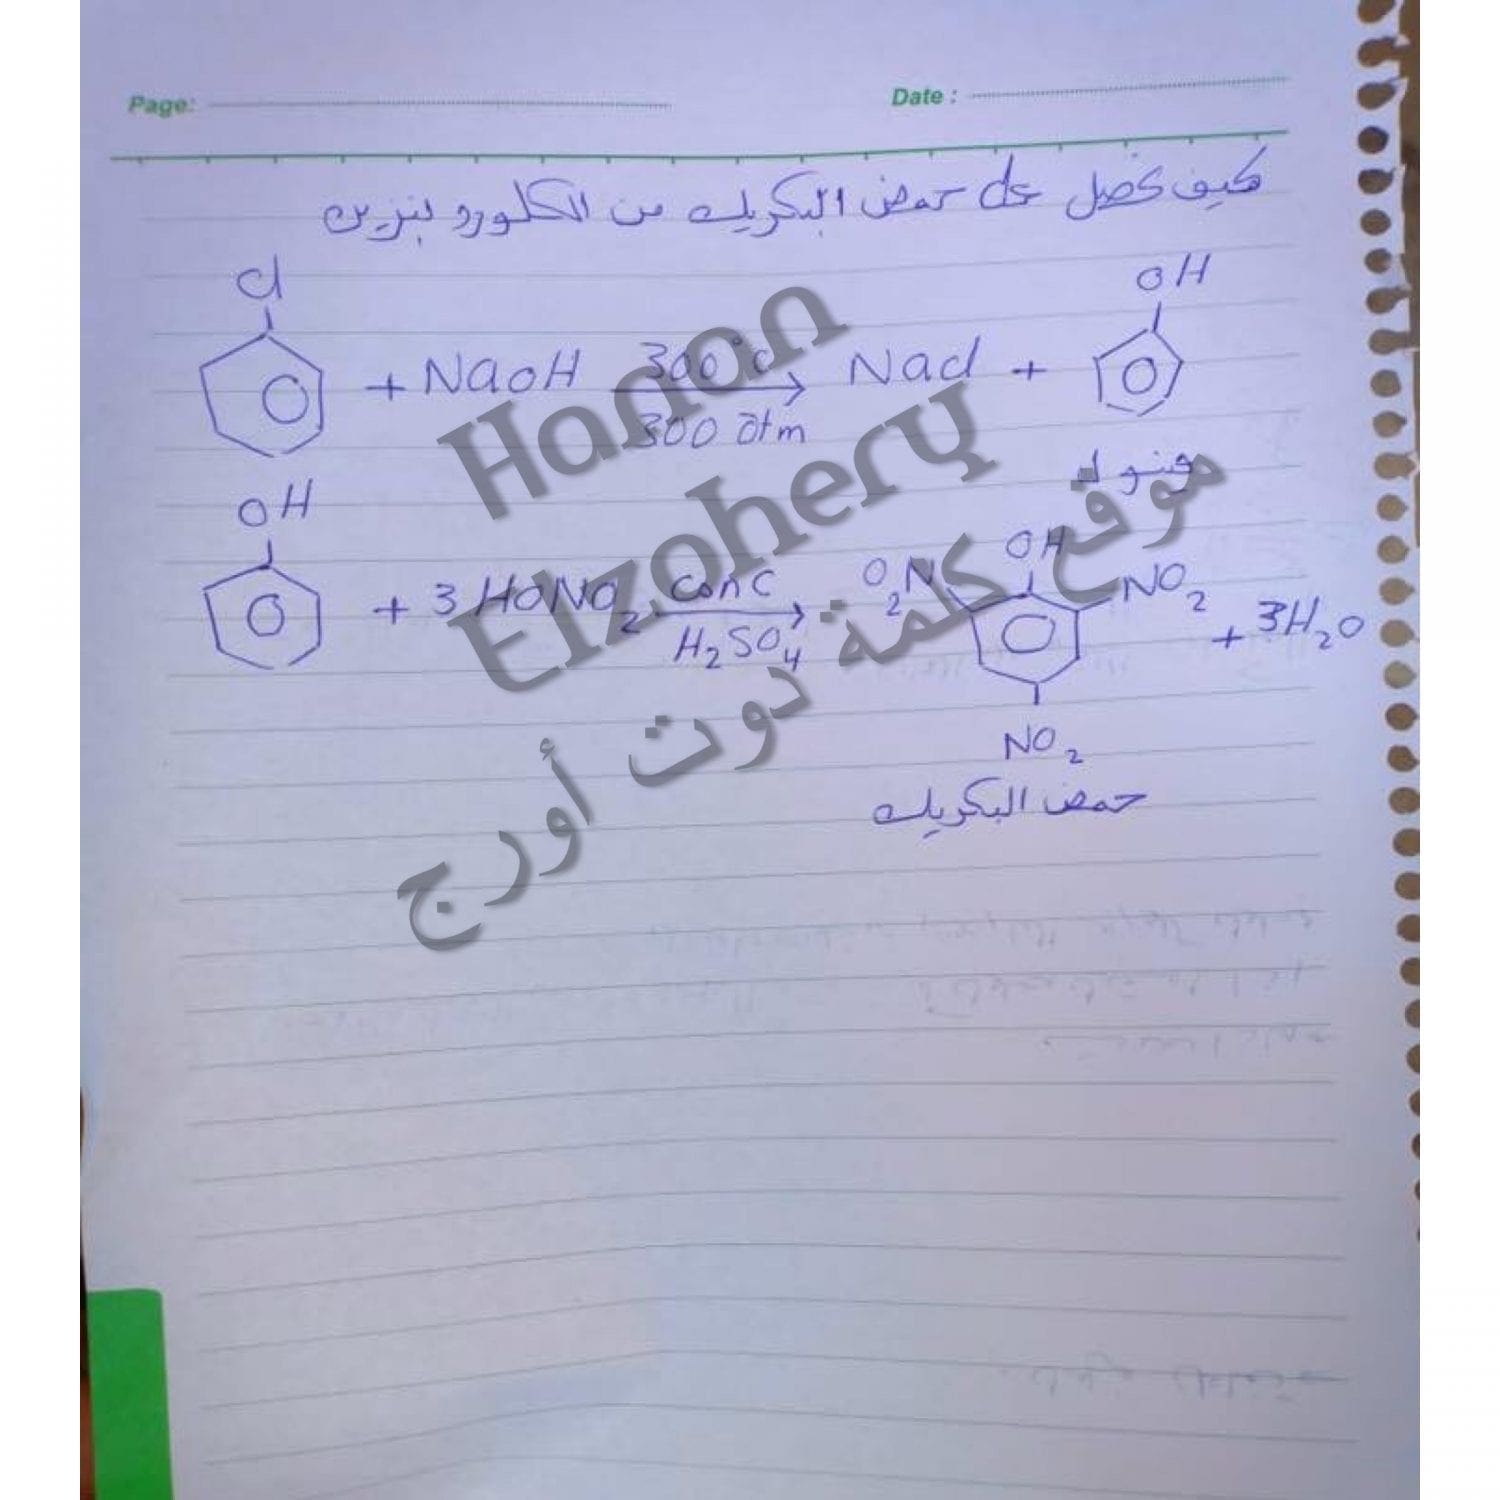 Page: Date :
كيف نحصل على حمض البكريك من الكلورو بنزين
Cl
+ NaOH 300°c 300 atm NaCl +
OH
فينول
OH
+ 3 HONO2 conc H2SO4
OH
O2N NO2 + 3H2O
NO2
حمض البكريك
Hanan
Elzohery
موقع كلمة دوت أورج